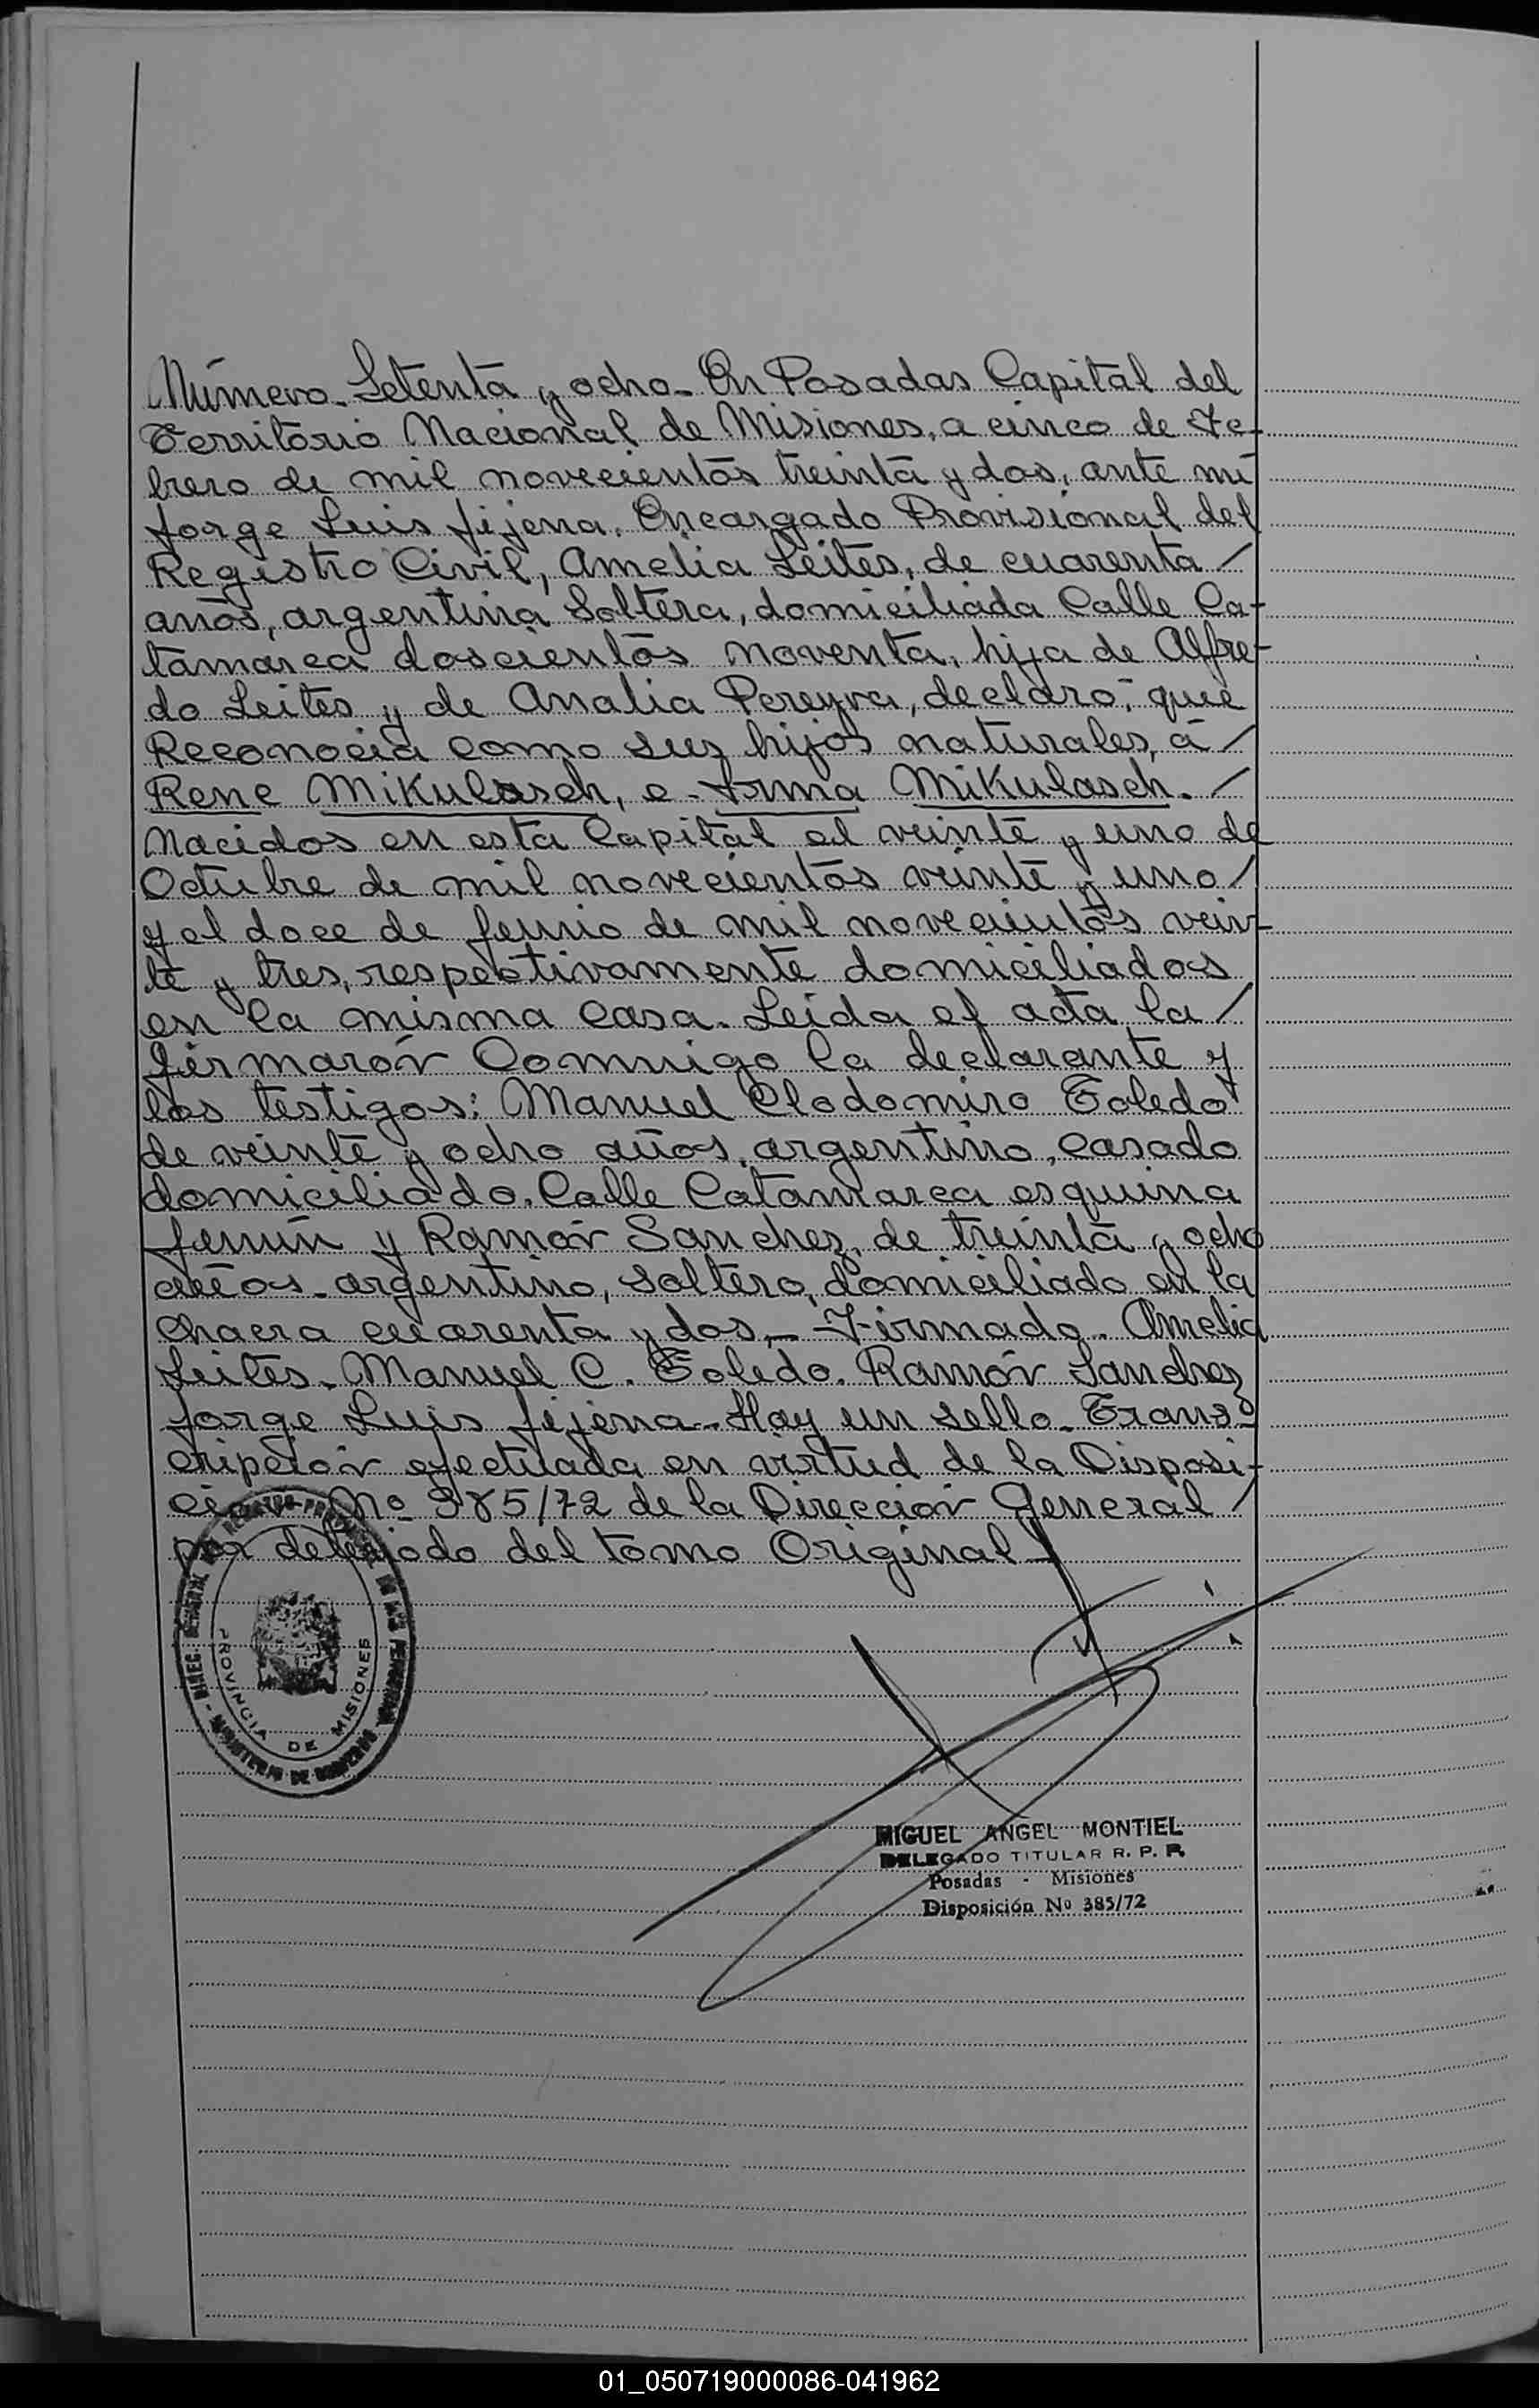 Número. Setenta y ocho. En Posadas Capital del
Territorio Nacional de Misiones, a cinco de Fe-
brero de mil novecientos treinta y dos, ante mi
Jorge Luis Jijena, Encargado Provisional del
Registro Civil, Amelia Leites, de cuarenta /
años, argentina Soltera, domiciliada Calle Ca-
tamarca doscientos noventa, hija de Alfre-
do Leites y de Analia Pereyra, declaro, que
Reconocia como sus hijos naturales, a /
Rene Mikulasch, e Irma Mikulasch. /
Nacidos en esta Capital el veinte y uno de
Octubre de mil novecientos veinte y uno /
y el doce de Junio de mil novecientos vein-
te y tres, respectivamente domiciliados
en la misma Casa. Leida el acta la /
firmarón Conmigo la declarante y
los testigos: Manuel Clodomiro Toledo
de veinte y ocho años, argentino, Casado
domiciliado, Calle Catamarca esquina
Junín y Ramón Sanchez, de treinta y ocho
años. argentino, Soltero, domiciliado en la
Chacra cuarenta y dos, - Firmado. Amelia
Leites. Manuel C. Toledo. Ramón Sanchez
Jorge Luis Jijena. Hay un sello. Trans-
cripción efectuada en virtud de la Disposi-
ción Nº 385/72 de la Dirección General /
por del tomo Original
DIREC. GENERAL DEL REGISTRO PROVINCIAL DE LAS PERSONAS - MINISTERIO DE GOBIERNO
PROVINCIA DE MISIONES
MIGUEL ANGEL MONTIEL
DELEGADO TITULAR R. P. P.
Posadas - Misiones
Disposición Nº 385/72
01_050719000086-041962